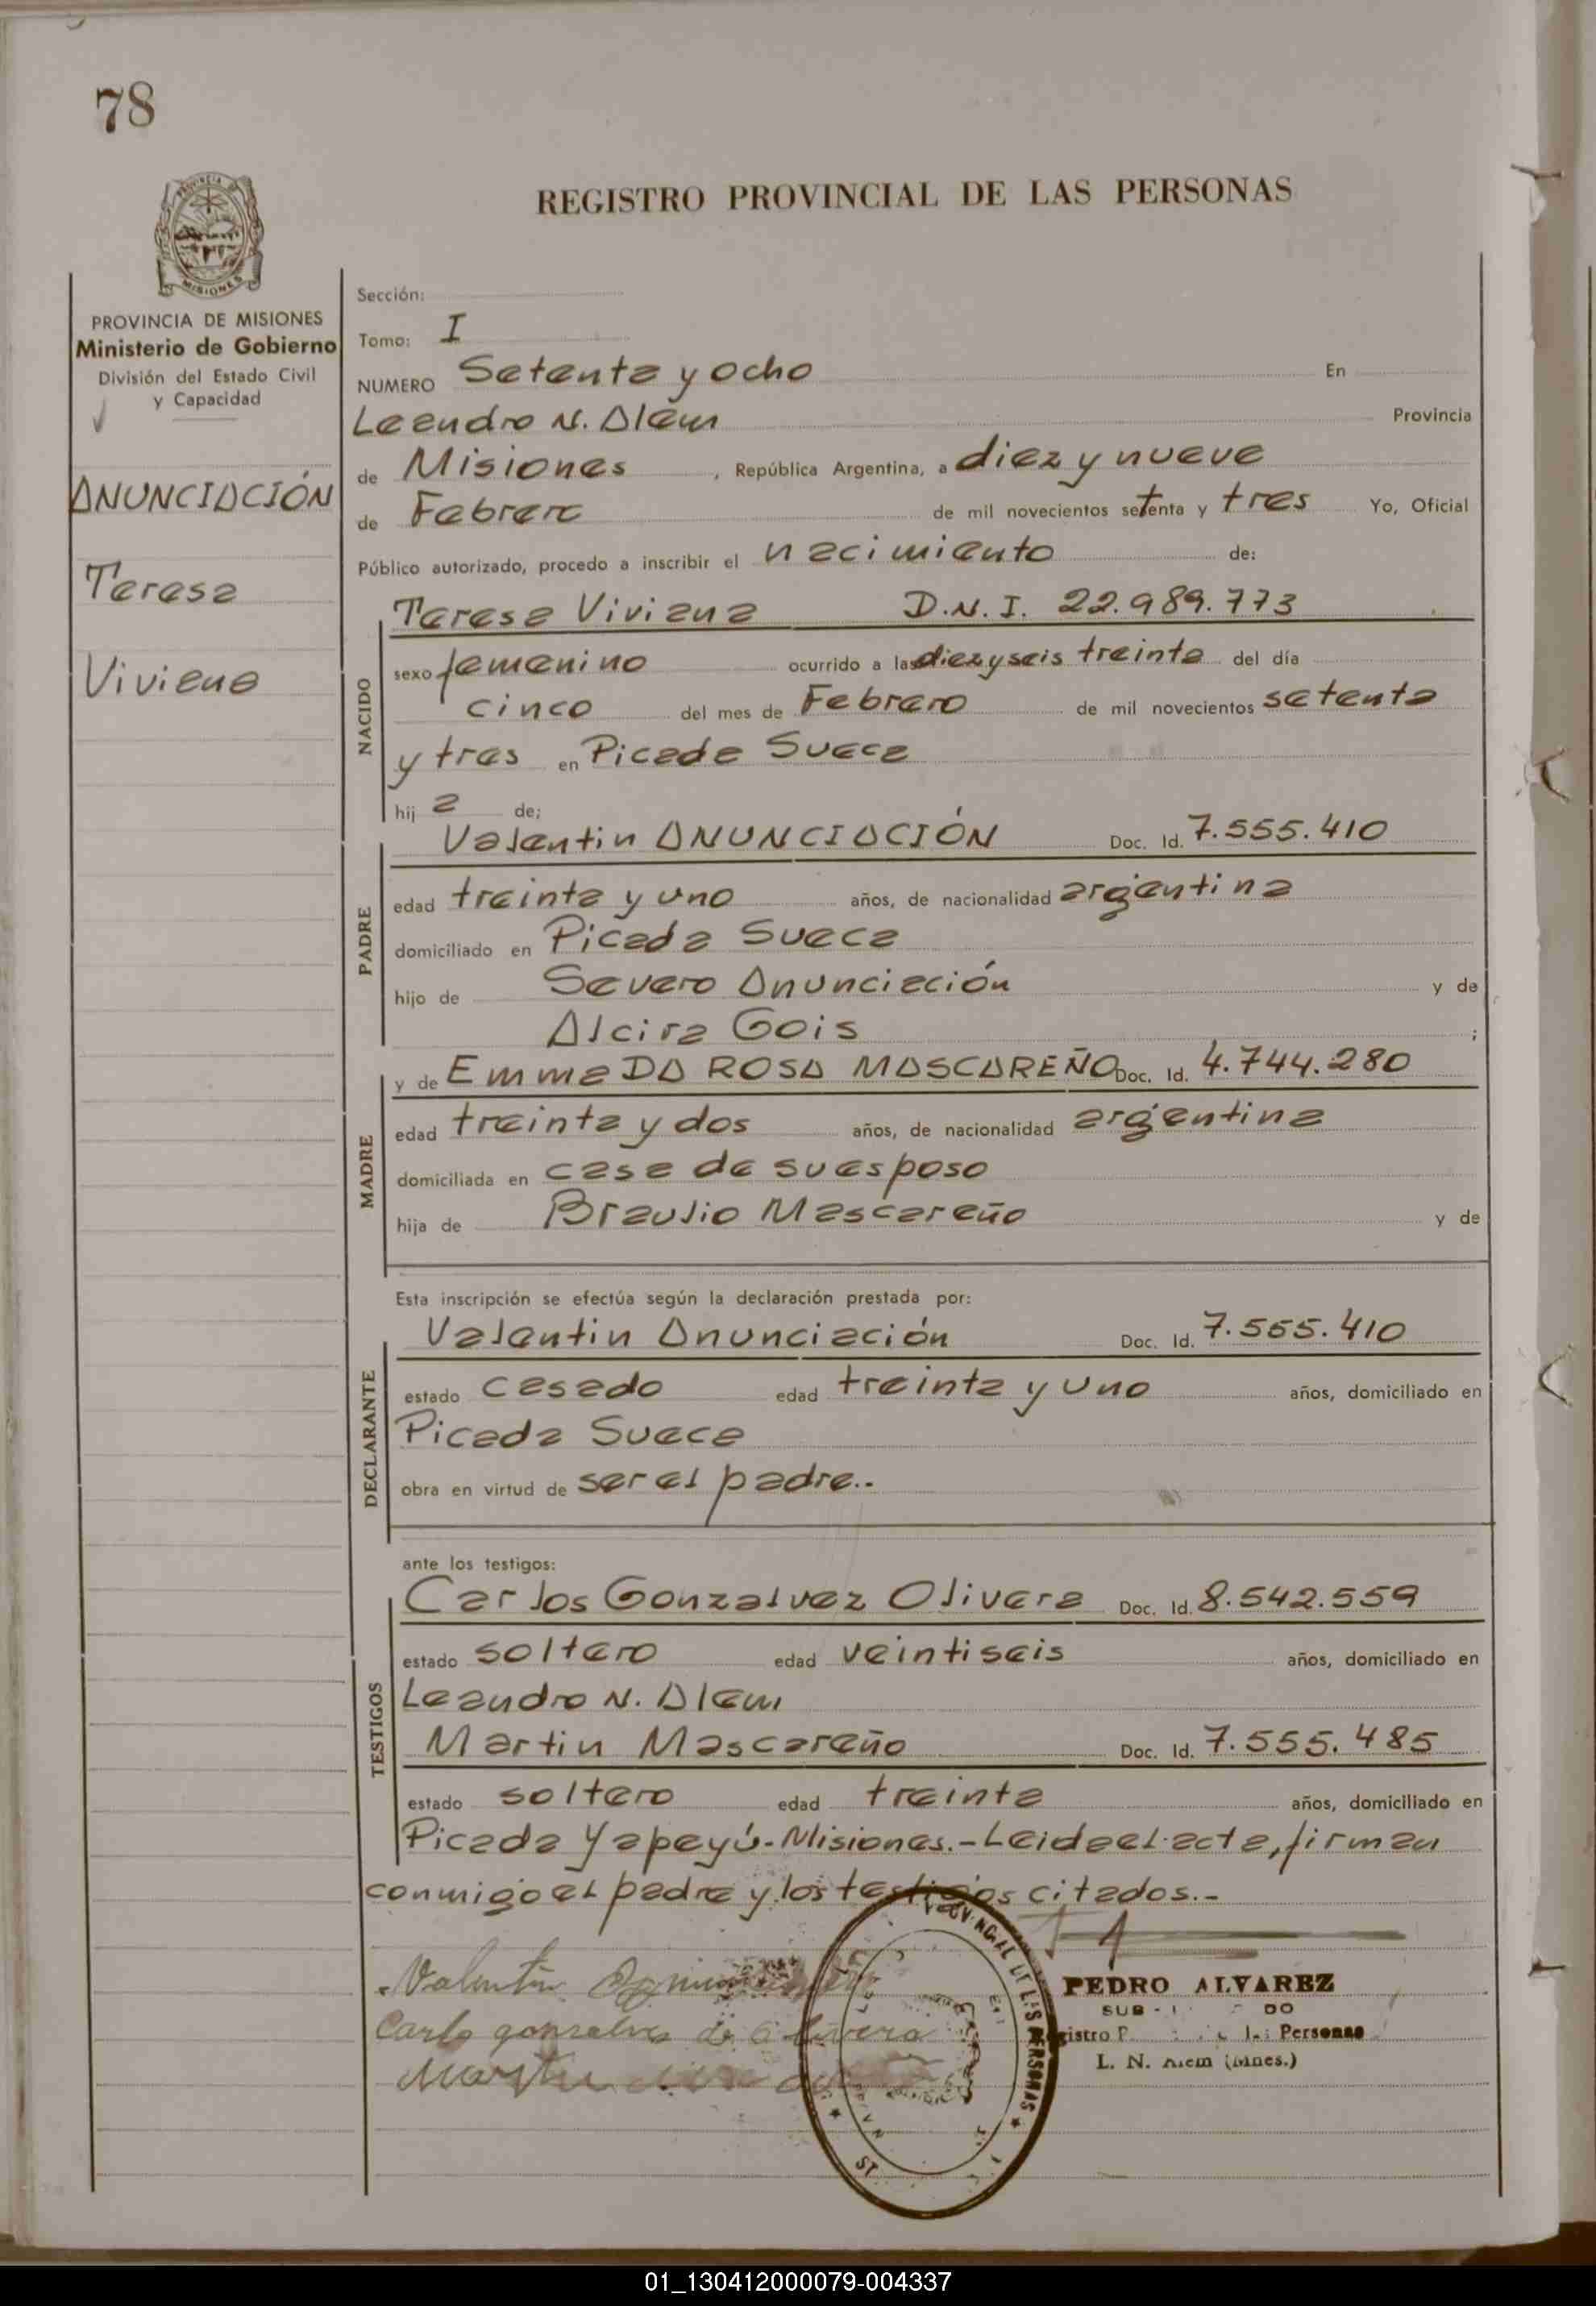 78
REGISTRO PROVINCIAL DE LAS PERSONAS
PROVINCIA DE
MISIONES
PROVINCIA DE MISIONES
Ministerio de Gobierno
División del Estado Civil
y Capacidad
ANUNCIACIÓN
Teresa
Viviana
Sección:
Tomo: I
NUMERO Setenta y ocho En
Leandro N. Alem Provincia
de Misiones, República Argentina, a diez y nueve
de Febrero de mil novecientos setenta y tres Yo, Oficial
Público autorizado, procedo a inscribir el nacimiento de:
NACIDO
Teresa Viviana D.N.I. 22.989.773
sexo femenino ocurrido a las diez y seis treinta del día
cinco del mes de Febrero de mil novecientos setenta
y tres en Picada Sueca
hij a de;
PADRE
Valentin ANUNCIACIÓN Doc. Id. 7.555.410
edad treinta y uno años, de nacionalidad argentina
domiciliado en Picada Sueca
hijo de Severo Anunciación y de
Alcira Gois ;
MADRE
y de Emma DA ROSA MASCAREÑO Doc. Id. 4.744.280
edad treinta y dos años, de nacionalidad argentina
domiciliada en casa de su esposo
hija de Braulio Mascareño y de
Esta inscripción se efectúa según la declaración prestada por:
DECLARANTE
Valentin Anunciación Doc. Id. 7.555.410
estado casado edad treinta y uno años, domiciliado en
Picada Sueca
obra en virtud de ser el padre..
ante los testigos:
TESTIGOS
Carlos Gonzalvez Olivera Doc. Id. 8.542.559
estado soltero edad veintiseis años, domiciliado en
Leandro N. Alem
Martin Mascareño Doc. Id. 7.555.485
estado soltero edad treinta años, domiciliado en
Picada Yapeyú-Misiones.-Leida el acta, firman
conmigo el padre y los testigos citados.-
Valentin
Carlo gonzalves de olivera
Martin
PEDRO ALVAREZ
Personas
L. N. Alem (Mnes.)
01_130412000079-004337